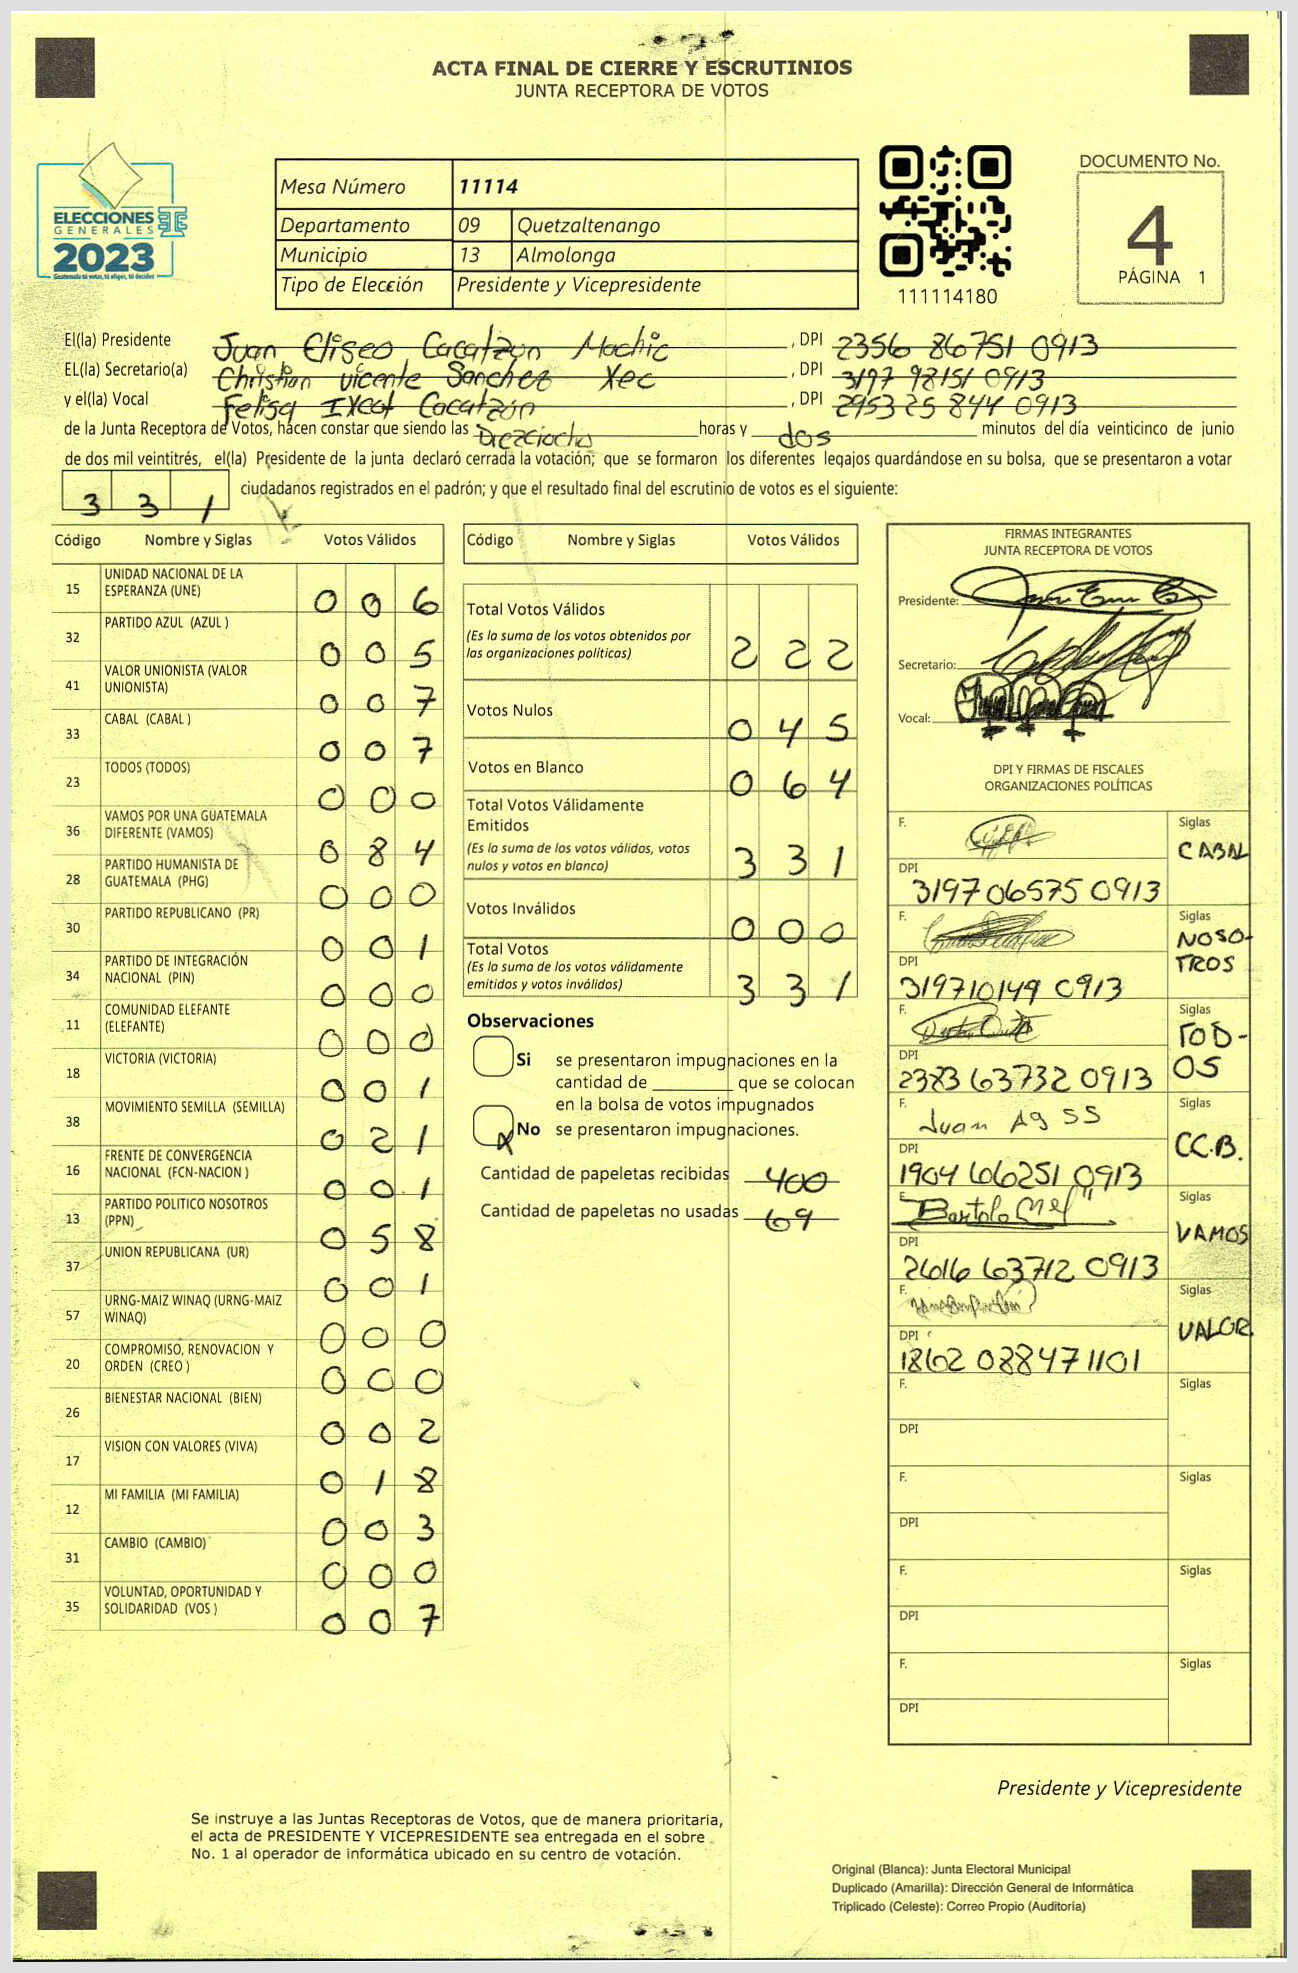 ACTA FINAL DE CIERRE Y ESCRUTINIOS
JUNTA RECEPTORA DE VOTOS
ELECCIONES
GENERALES
2023
Guatemala tú votas, tú eliges, tú decides
Mesa Número 11114
Departamento 09 Quetzaltenango
Municipio 13 Almolonga
Tipo de Elección Presidente y Vicepresidente
111114180
DOCUMENTO No.
4
PÁGINA 1
El(la) Presidente Juan Eliseo Cacatzun Machic, DPI 2356 86751 0913
EL(la) Secretario(a) Christian Vicente Sanchez Xec, DPI 3197 98151 0913
y el(la) Vocal Felisa IXcot Cacatzón, DPI 2953 25 844 0913
de la Junta Receptora de Votos, hacen constar que siendo las Diezciocho horas y dos minutos del día veinticinco de junio
de dos mil veintitrés, el(la) Presidente de la junta declaró cerrada la votación; que se formaron los diferentes legajos guardándose en su bolsa, que se presentaron a votar
3 3 1 ciudadanos registrados en el padrón; y que el resultado final del escrutinio de votos es el siguiente:
Código Nombre y Siglas Votos Válidos
15 UNIDAD NACIONAL DE LA
ESPERANZA (UNE) 0 0 6
32 PARTIDO AZUL (AZUL ) 0 0 5
41 VALOR UNIONISTA (VALOR
UNIONISTA) 0 0 7
33 CABAL (CABAL ) 0 0 7
23 TODOS (TODOS) 0 0 0
36 VAMOS POR UNA GUATEMALA
DIFERENTE (VAMOS) 0 8 4
28 PARTIDO HUMANISTA DE
GUATEMALA (PHG) 0 0 0
30 PARTIDO REPUBLICANO (PR) 0 0 1
34 PARTIDO DE INTEGRACIÓN
NACIONAL (PIN) 0 0 0
11 COMUNIDAD ELEFANTE
(ELEFANTE) 0 0 0
18 VICTORIA (VICTORIA) 0 0 1
38 MOVIMIENTO SEMILLA (SEMILLA) 0 2 1
16 FRENTE DE CONVERGENCIA
NACIONAL (FCN-NACION ) 0 0 1
13 PARTIDO POLITICO NOSOTROS
(PPN) 0 5 8
37 UNION REPUBLICANA (UR) 0 0 1
57 URNG-MAIZ WINAQ (URNG-MAIZ
WINAQ) 0 0 0
20 COMPROMISO, RENOVACION Y
ORDEN (CREO ) 0 0 0
26 BIENESTAR NACIONAL (BIEN) 0 0 2
17 VISION CON VALORES (VIVA) 0 1 8
12 MI FAMILIA (MI FAMILIA) 0 0 3
31 CAMBIO (CAMBIO) 0 0 0
35 VOLUNTAD, OPORTUNIDAD Y
SOLIDARIDAD (VOS ) 0 0 7
Código Nombre y Siglas Votos Válidos
Total Votos Válidos
(Es la suma de los votos obtenidos por
las organizaciones políticas) 2 2 2
Votos Nulos 0 4 5
Votos en Blanco 0 6 4
Total Votos Válidamente
Emitidos
(Es la suma de los votos válidos, votos
nulos y votos en blanco) 3 3 1
Votos Inválidos 0 0 0
Total Votos
(Es la suma de los votos válidamente
emitidos y votos inválidos) 3 3 1
Observaciones
Si se presentaron impugnaciones en la
cantidad de ________ que se colocan
en la bolsa de votos impugnados
X No se presentaron impugnaciones.
Cantidad de papeletas recibidas 400
Cantidad de papeletas no usadas 69
FIRMAS INTEGRANTES
JUNTA RECEPTORA DE VOTOS
Presidente:
Secretario:
Vocal:
DPI Y FIRMAS DE FISCALES
ORGANIZACIONES POLÍTICAS
F. Siglas
CABAL
DPI
3197 06575 0913
F. Siglas
NOSO-
TROS
DPI
319710149 0913
F. Siglas
TOD-
OS
DPI
2383 63732 0913
F. Juan Ag SS Siglas
CC.B.
DPI
1904 66251 0913
F. Bartolo Siglas
VAMOS
DPI
2616 63712 0913
F. Siglas
VALOR
DPI
1862 08847 1101
F. Siglas
DPI
F. Siglas
DPI
F. Siglas
DPI
F. Siglas
DPI
Presidente y Vicepresidente
Se instruye a las Juntas Receptoras de Votos, que de manera prioritaria,
el acta de PRESIDENTE Y VICEPRESIDENTE sea entregada en el sobre
No. 1 al operador de informática ubicado en su centro de votación.
Original (Blanca): Junta Electoral Municipal
Duplicado (Amarilla): Dirección General de Informática
Triplicado (Celeste): Correo Propio (Auditoría)